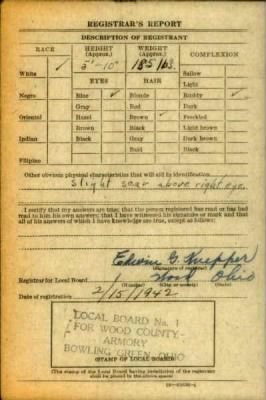 REGISTRAR'S REPORT
DESCRIPTION OF REGISTRANT
RACE HEIGHT (Approx.) WEIGHT (Approx.) COMPLEXION
5'-10" 185 lbs.
White ✓ Sallow
EYES HAIR Light
Negro Blue ✓ Blonde Ruddy ✓
Gray Red Dark
Oriental Hazel Brown ✓ Freckled
Brown Black Light brown
Indian Black Gray Dark brown
Bald Black
Filipino
Other obvious physical characteristics that will aid in identification
Slight scar above right eye.
I certify that my answers are true; that the person registered has read or has had
read to him his own answers; that I have witnessed his signature or mark and that
all of his answers of which I have knowledge are true, except as follows:
Edwin G. Knepper
(Signature of registrar)
Registrar for Local Board 1 Wood Ohio
(Number) (City or county) (State)
Date of registration 2/15/1942
LOCAL BOARD No. 1
FOR WOOD COUNTY
ARMORY
BOWLING GREEN, OHIO
(STAMP OF LOCAL BOARD)
(The stamp of the Local Board having jurisdiction of the registrant
shall be placed in the above space)